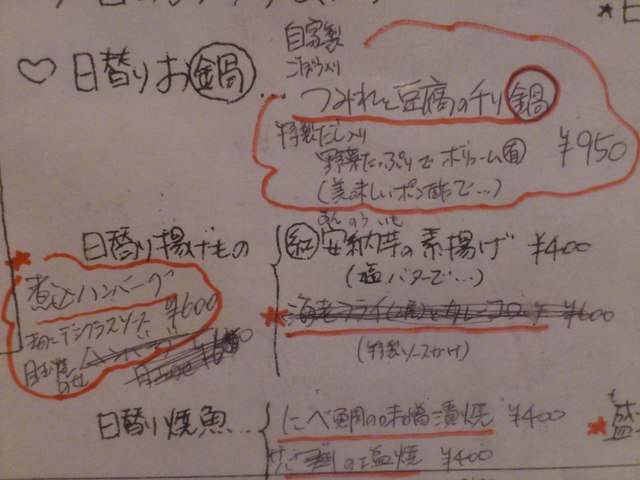 ♡日替りお鍋…
自家製
ごぼう入り
つみれと豆腐のチリ鍋
特製だし入り
野菜たっぷりでボリューム有
¥950
(美味しいポン酢で…)
日替り揚げもの
あんのういも
紅安納芋の素揚げ ¥400
(塩バターで…)
煮込ハンバーグ
¥600
デミグラスソース
目玉焼
のせ
海老フライ ¥600
(特製ソースかけ)
日替り焼魚…
にべ鯛の味噌漬焼 ¥400
の塩焼 ¥400
盛